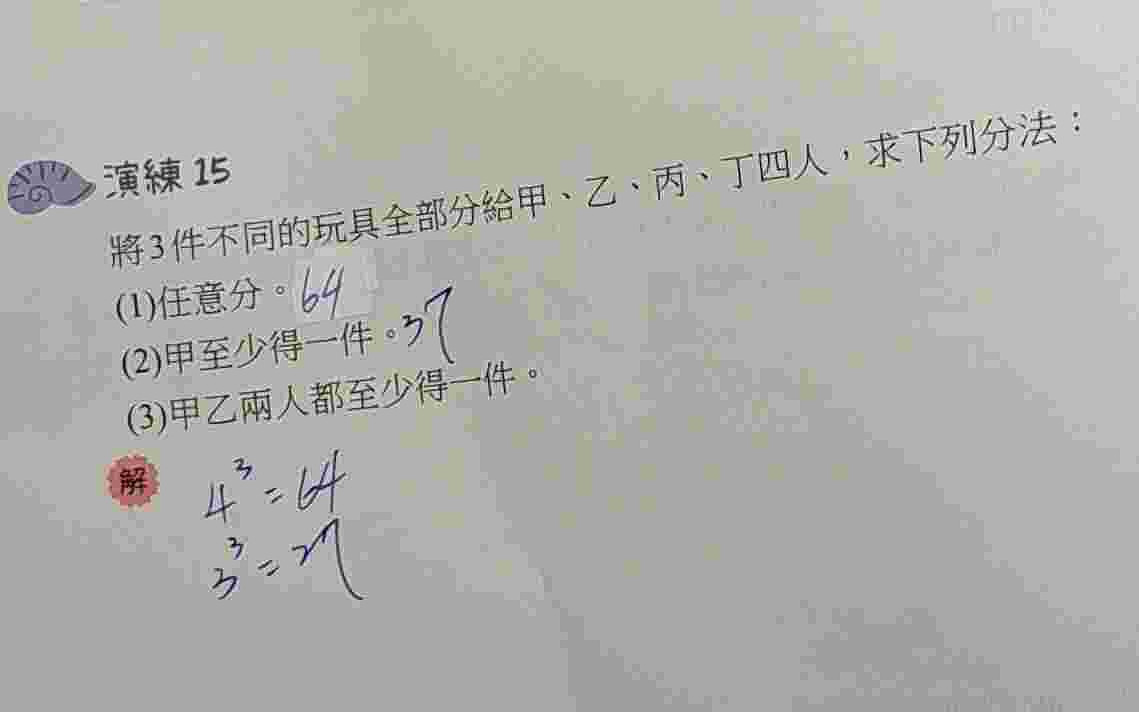 演練 15
將3件不同的玩具全部分給甲、乙、丙、丁四人，求下列分法：
(1)任意分。64
(2)甲至少得一件。37
(3)甲乙兩人都至少得一件。
解
4³=64
3³=27